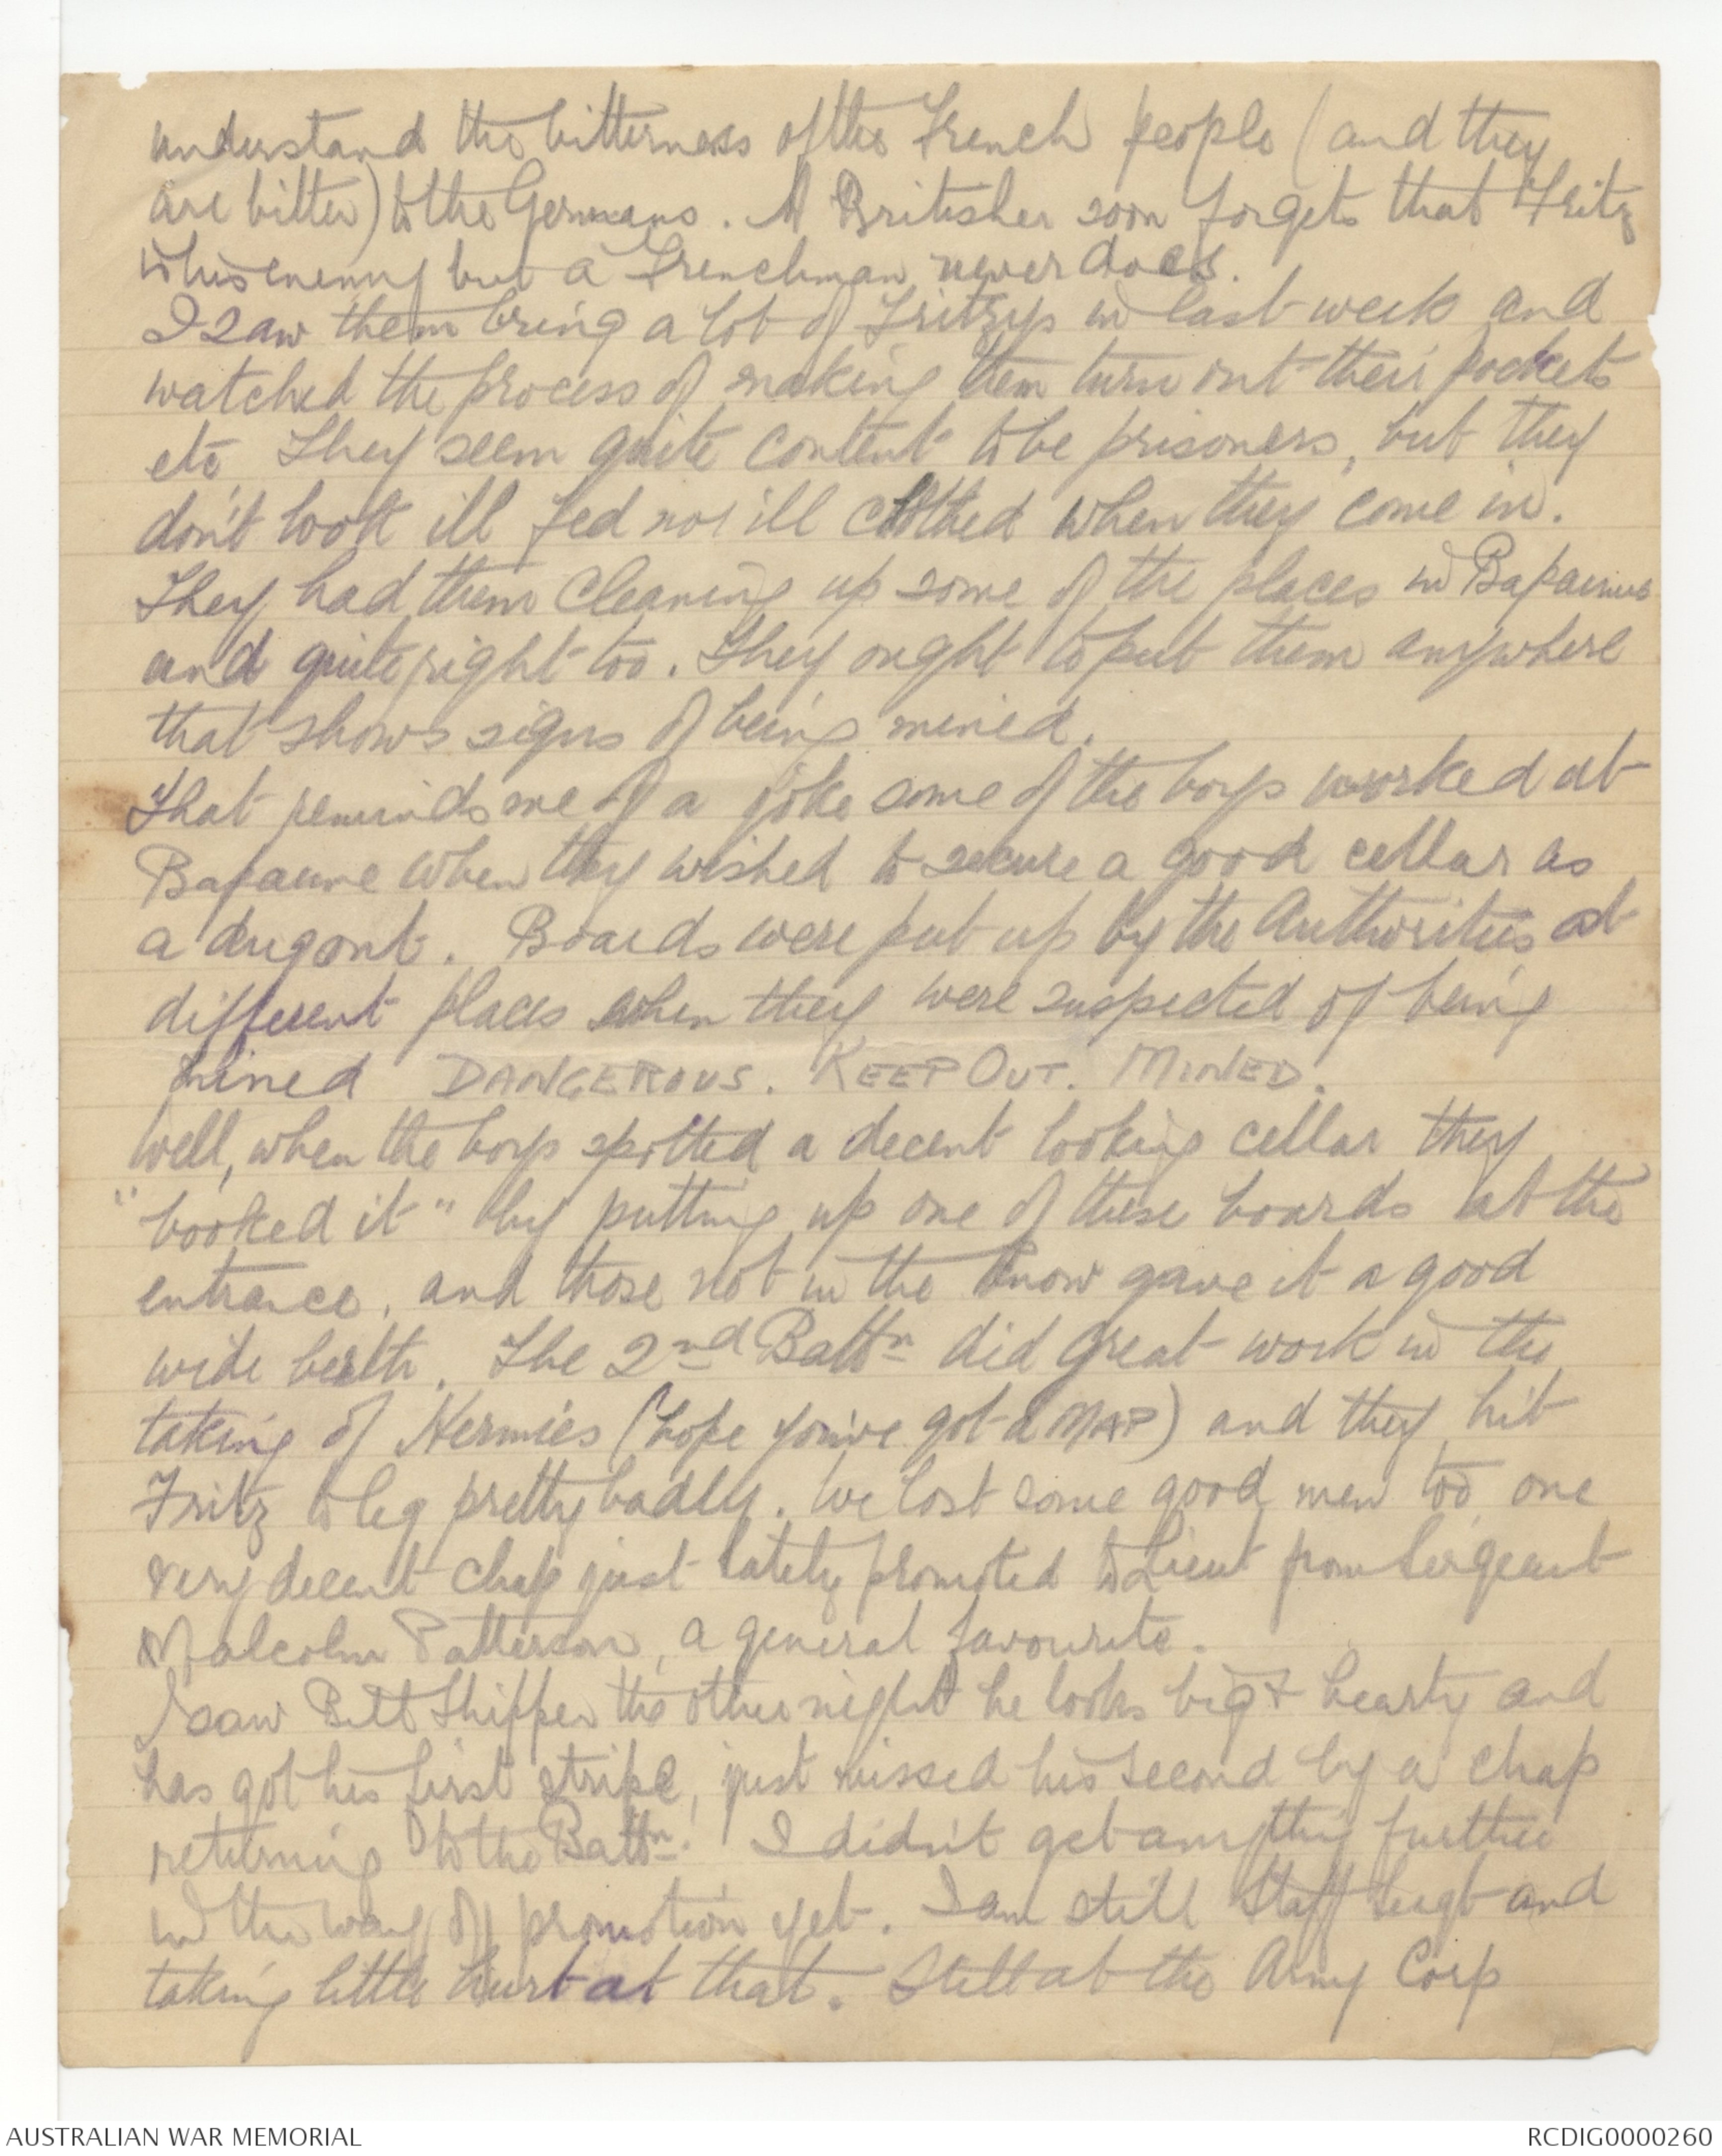 understand the bitterness of the French people (and they
are bitter) to the Germans. A Britisher soon forgets that Fritz
is his enemy but a Frenchman never does.
I saw them bring a lot of Fritzys in last week and
watched the process of making them turn out their pockets
etc. They seem quite content to be prisoners, but they
don't look ill fed nor ill clothed when they come in.
They had them cleaning up some of the places in Bapaume
and quite right too. They ought to put them anywhere
that shows signs of being mined.
That reminds me of a joke some of the boys worked at
Bapaume when they wished to secure a good cellar as
a dugout. Boards were put up by the Authorities at
different places when they were suspected of being
mined DANGEROUS. KEEP OUT. MINED.
Well, when the boys spotted a decent looking cellar they
"booked it" by putting up one of these boards at the
entrance, and those not in the know gave it a good
wide berth. The 2nd Battn did great work in the
taking of Hermies (hope you've got a MAP) and they hit
Fritz to leg pretty badly. We lost some good men too, one
very decent chap just lately promoted to Lieut from Sergeant
Malcolm Patterson, a general favourite.
I saw Shipper the other night he looks big & hearty and
has got his first stripe, just missed his second by a chap
returning to the Battn. I didn't get anything further
in the way of promotion yet. I am still Staff Sergt and
taking little hurt at that. Still at the Army Corp
AUSTRALIAN WAR MEMORIAL
RCDIG0000260